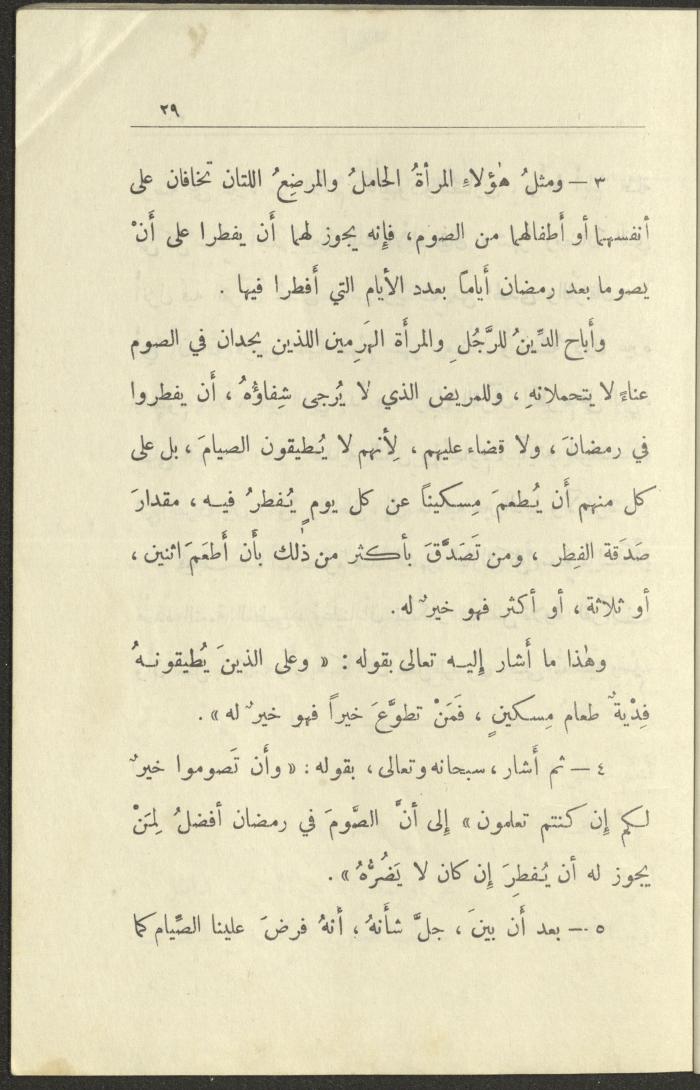 ٢٩
٣ – ومثلُ هٰؤلاءِ المرأةُ الحاملُ والمرضِعُ اللتان تخافان على
أنفسهما أو أَطفالهما من الصوم، فإِنه يجوز لهما أَن يفطرا على أَنْ
يصوما بعد رمضان أَياماً بعدد الأيام التي أَفطرا فيها .
وأَباح الدِّينُ للرَّجُلِ والمرأَة الهَرِمين اللذين يجدان في الصوم
عناءً لا يتحملانهِ ، وللمريض الذي لا يُرجى شِفاؤُهُ ، أَن يفطروا
في رمضانَ ، ولا قضاء عليهم ، لِأَنهم لا يُطيقون الصيامَ ، بل على
كل منهم أَن يُطعمَ مِسكيناً عن كل يومٍ يُفطرُ فيه ، مقدارَ
صَدَقة الفِطر ، ومن تَصَدَّقَ بأكثر من ذٰلك بأَن أَطعَمَ اثنين ،
أو ثلاثة ، أو أكثر فهو خيرٌ له .
وهٰذا ما أَشار إِليه تعالى بقوله : « وعلى الذينَ يُطيقونهُ
فِدْيةٌ طعام مِسكينٍ ، فَمَنْ تطوَّعَ خيراً فهو خيرٌ له » .
٤ – ثم أَشار ، سبحانه وتعالى ، بقوله : « وأَن تَصوموا خيرٌ
لكم إِن كنتم تعلمون » إِلى أَنَّ الصَّومَ في رمضان أفضلُ لِمَنْ
يجوز له أن يُفطِرَ إِن كان لا يَضُرُّهُ » .
٥ – بعد أَن بينَ ، جلَّ شأَنهُ ، أَنهُ فرضَ علينا الصِّيام كما